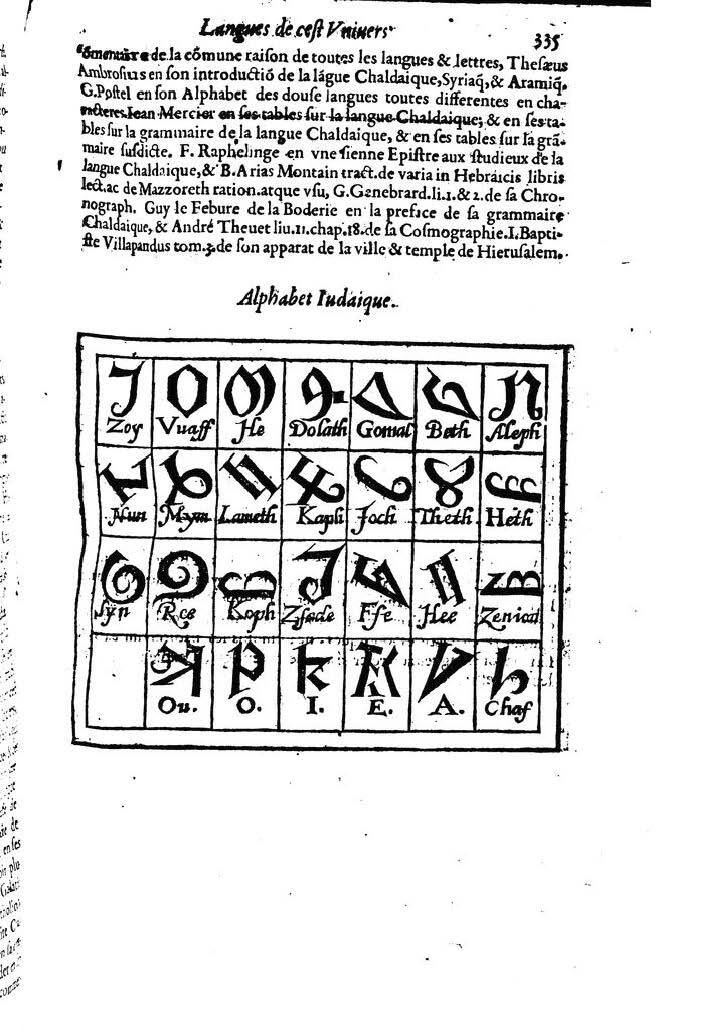 Langues de cest Vniuers
335
cōmentaire de la cōmune raison de toutes les langues & lettres, Thesæus
Ambrosius en son introductiō de la lāgue Chaldaique, Syriaq̃, & Aramiq̃.
G. Postel en son Alphabet des douse langues toutes differentes en cha-
racteres. Iean Mercier en ses tables sur la langue Chaldaique; & en ses ta-
bles sur la grammaire de la langue Chaldaique, & en ses tables sur la grā-
maire susdicte. F. Raphelinge en vne sienne Epistre aux studieux de la
langue Chaldaique, & B. Arias Montain tract. de varia in Hebraicis libris
lect. ac de Mazzoreth ration. atque vsu, G. Genebrard. li. 1. & 2. de sa Chro-
nograph. Guy le Febure de la Boderie en la preface de sa grammaire
Chaldaique, & André Theuet liu. 11. chap. 18. de sa Cosmographie. I. Bapti-
ste Villapandus tom. 3. de son apparat de la ville & temple de Hierusalem.
Alphabet Iudaique.
Zoy Vuaff He Dolath Gomal Beth Aleph
Nun Mym Lameth Kaph Joch Theth Heth
Syn Rce Koph Zsade Ffe Hee Zeniod
Ou. O. I. E. A. Chaf